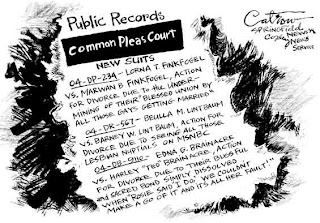 Public Records
Common Pleas Court
NEW SUITS
04-DP-234 - LORNA T. FINKFOGEL
VS. MARWAN B. FINKFOGEL, ACTION
FOR DIVORCE DUE TO "ALL UNDER-
MINING OF THEIR BLESSED UNION BY
ALL THOSE GAYS GETTING MARRIED"
04-DR-567 - BEULLA M. LINTBAUM
VS. BARNEY W. LINTBAUM, ACTION FOR
DIVORCE DUE TO "SEEING ALL THOSE
LESBIAN NUPTIALS ON MSNBC"
EDNA G. BRAINACRE
VS. HARLEY "TEO" BRAINACRE, ACTION
FOR DIVORCE DUE TO "THEIR BLISSFUL
AND SACRED BOND SIMPLY DISSOLVED
WHEN ROSIE SAID I DO. WE COULDN'T
MAKE A GO OF IT AND IT'S ALL HER FAULT!"
Catrow
SPRINGFIELD
NEWS
COPLEY
NEWS
SERVICE